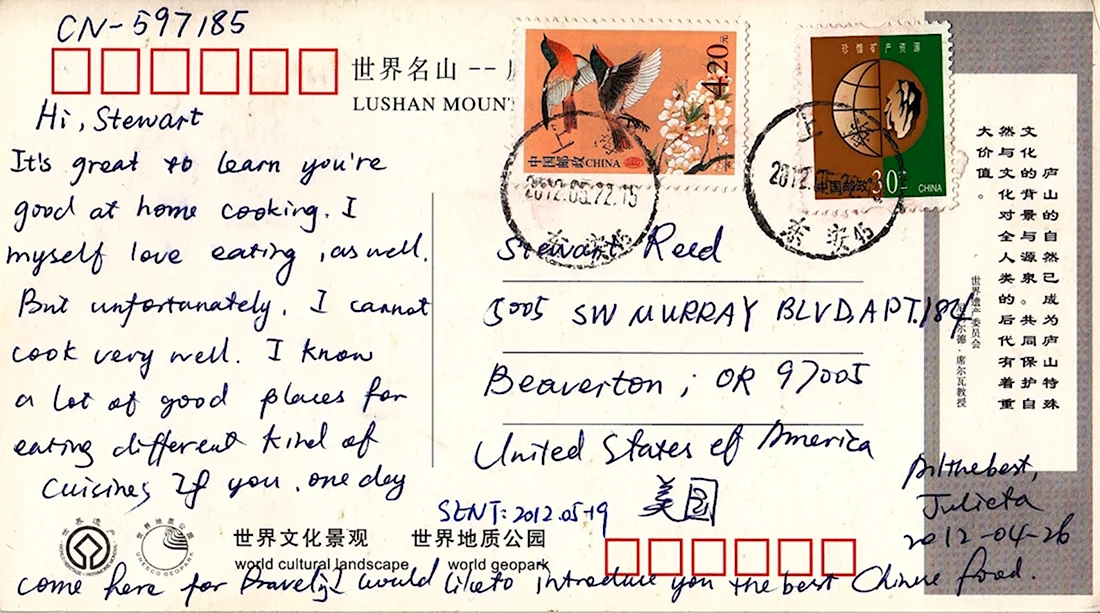 CN-597185
世界名山 --
LUSHAN MOUNT
Hi, Stewart
It's great to learn you're
good at home cooking. I
myself love eating, as well.
But unfortunately, I cannot
cook very well. I know
a lot of good places for
eating different kind of
cuisines. If you, one day
come here for travel, I would like to introduce you the best Chinese food.
4.20元
中国邮政 CHINA
2012.05.22.15
珍惜矿产资源
中国邮政
30
CHINA
上海
2012.
Stewart Reed
5005 SW MURRAY BLVD, APT.184
Beaverton, OR 97005
United States of America
美国
SENT: 2012.05-19
All the best,
Julieta
2012-04-26
庐山的自然已成为庐山特殊
文化的背景与源泉。共同保护自
然与文化对全人类的后代有着重
大价值。
世界遗产委员会
德·席尔瓦教授
世界遗产
WORLD HERITAGE
PATRIMOINE MONDIAL
世界地质公园
UNESCO GEOPARK
世界文化景观
world cultural landscape
世界地质公园
world geopark